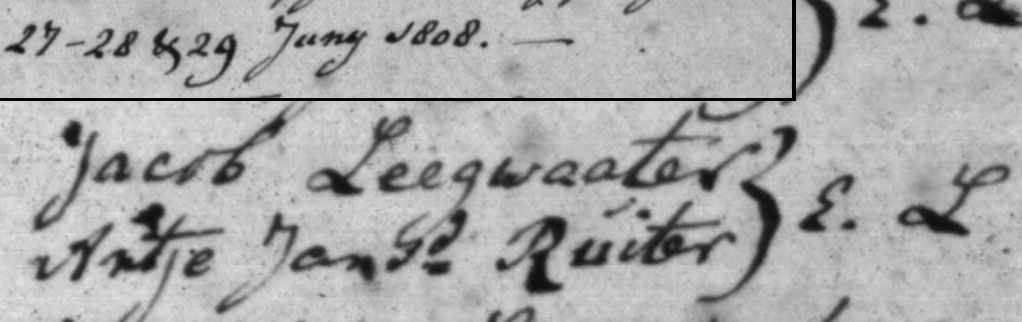 27-28 & 29 Juny 1808. —
Jacob Leegwaater
Antje Jans.d Ruiter } E. L